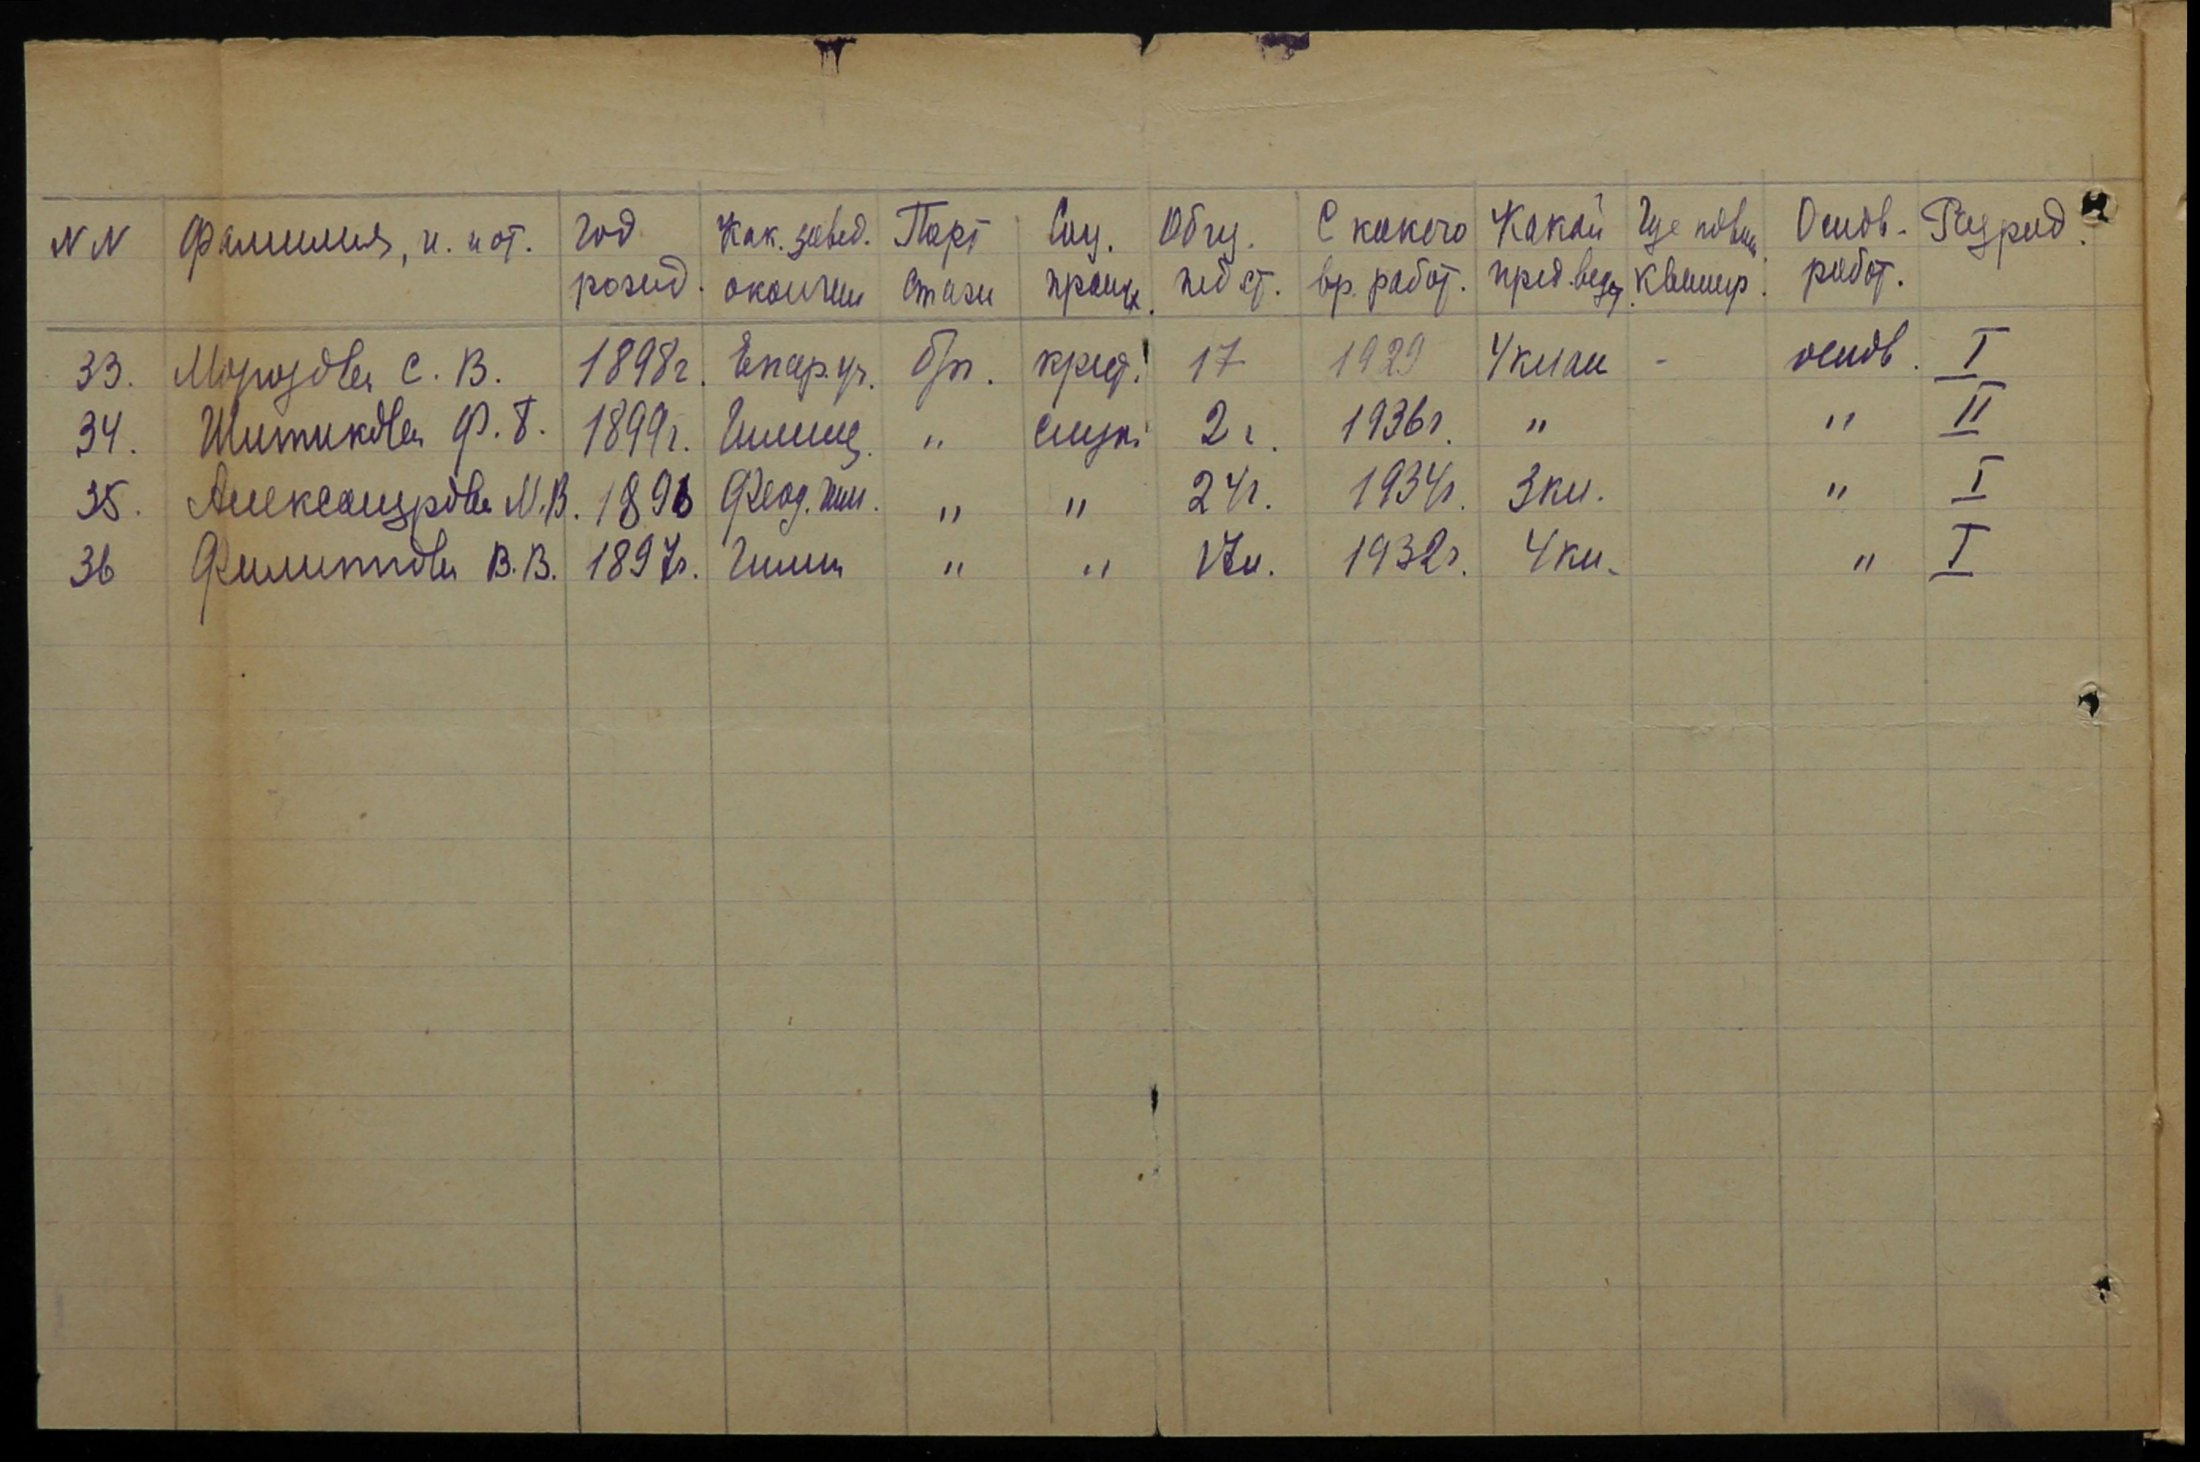 NN Фамилия, и. и от. Год рожд. Как. завед. окончил Парт стаж Соц. происх. Общ. пед ст. С какого вр. работ. Какой пред. ведет Где повыш. квалиф. Основ. работ. Разряд.
33. Морозова С. В. 1898г. Епар. уч. б/п. крест. 17 1929 4 класс - основ. I
34. Шитикова Ф. Т. 1899г. Гимназ. " служ. 2 г. 1936г. " " II
35. Александрова М.В. 1896 Феод. гим. " " 24г. 1934г. 3кл. " I
36 Филиппова В.В. 1897г. Гимн " " 17л. 1932г. 4кл. " I